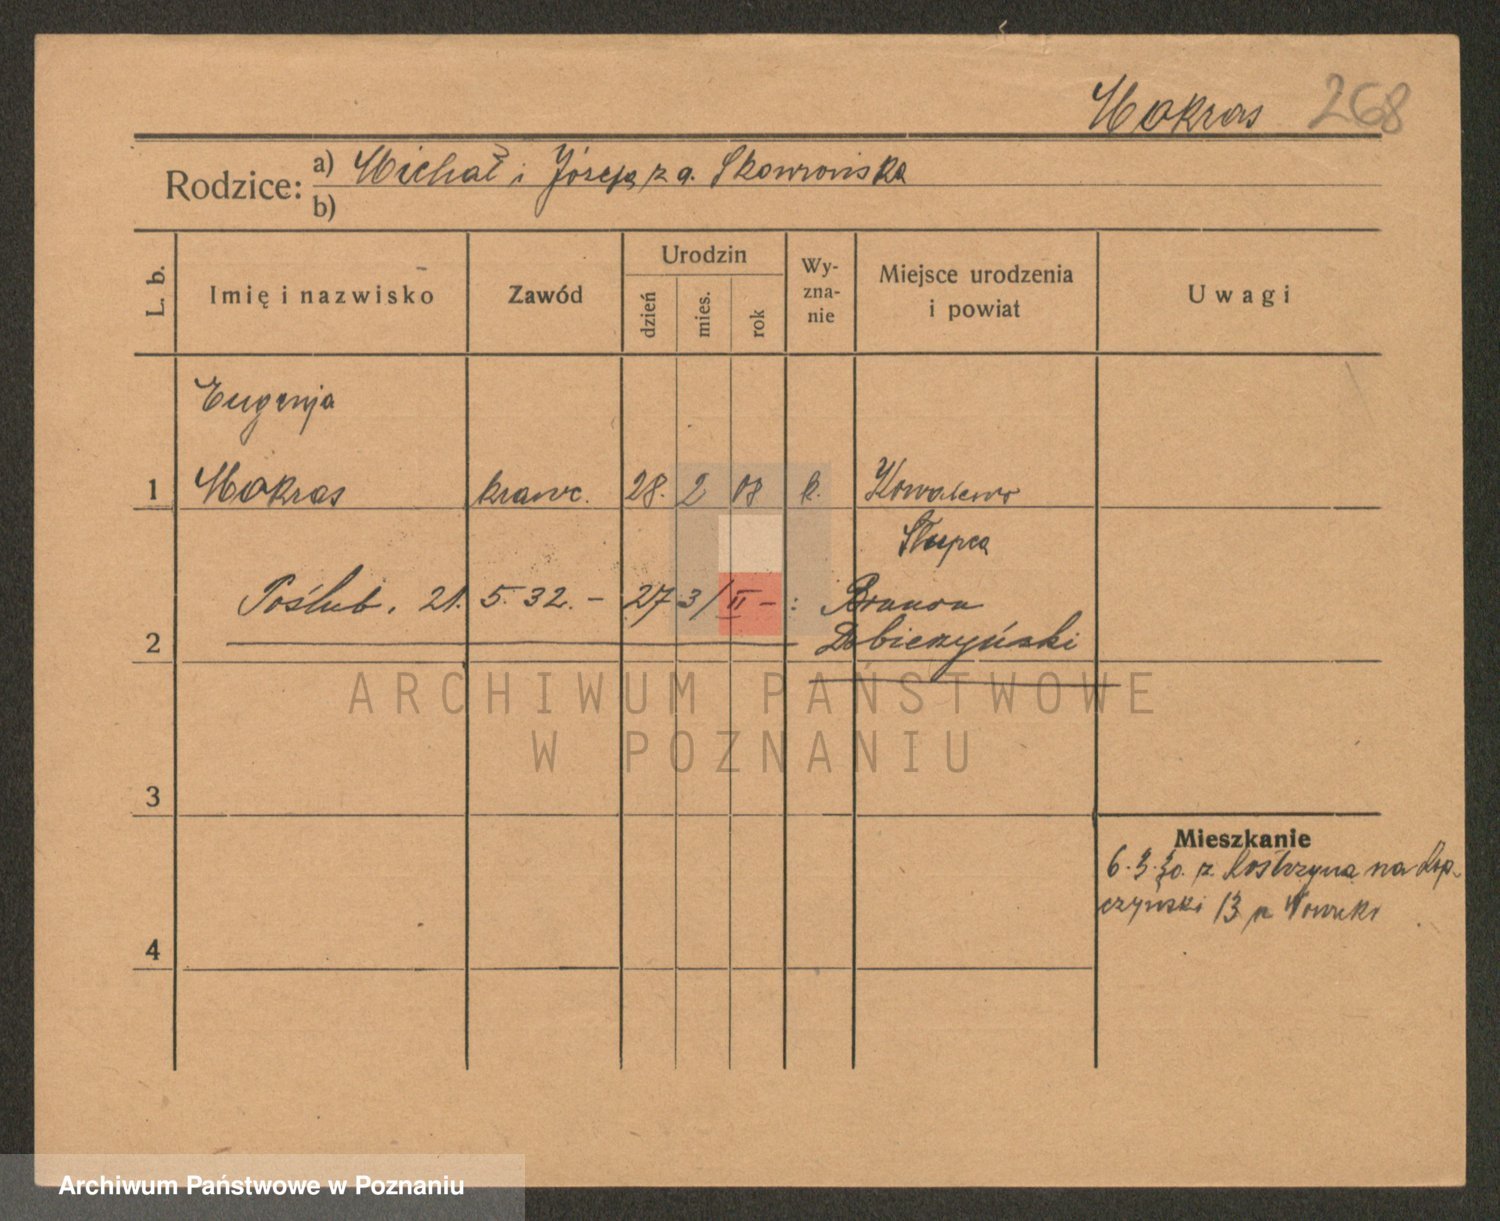 Mokras 268
Rodzice: a) Michał i Józefa z d. Skowrońska
b)
L. b. Imię i nazwisko Zawód Urodzin dzień mies. rok Wy-zna-nie Miejsce urodzenia i powiat Uwagi
Eugenja
1 Mokras krawc. 28. 2 08 k. Kowalewo
Słupca
Poślub. 21. 5. 32. - 27 3/II - :
2 Dobieszyński
ARCHIWUM PAŃSTWOWE
W POZNANIU
3
Mieszkanie
6. 3. 30. z Kostrzyna na
13
4
Archiwum Państwowe w Poznaniu